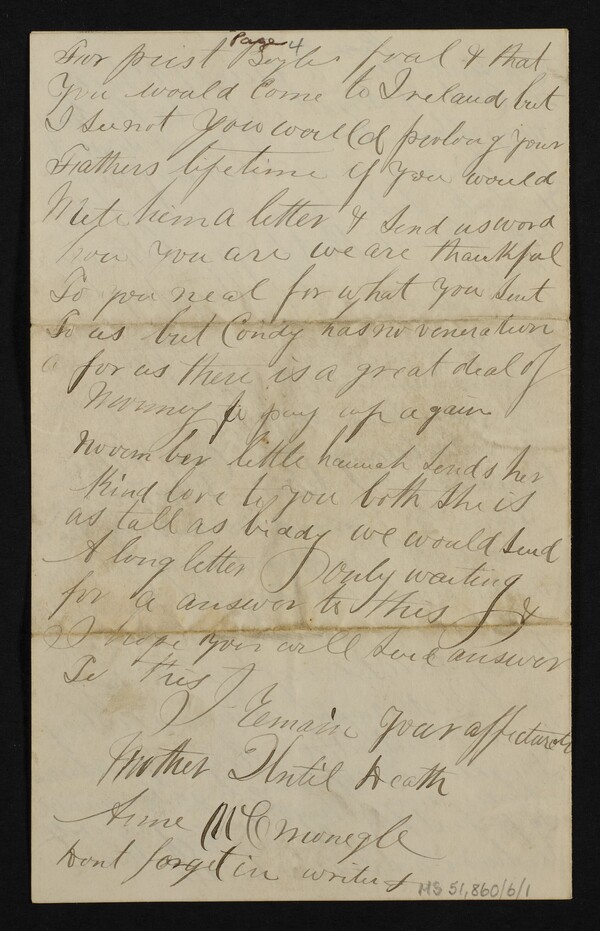 Page 4
For prist Boyls foal & that
You would Come to Ireland but
I See not You would prolong your
Fathers lifetime if you would
Write him a letter & Send us word
how You are we are thankful
To you neal for what You Sent
To us but Condy has no veneration
for us there is a great deal of
Mouney to pay up again
november little hannah Sends her
Kind love to you both She is
as tall as biddy we would Send
A long letter only waiting
for a answer to this &
I hope you will Send answer
To this
I Remain Your affectunate
Mother Until Death
Anne McCmonegle
Dont forget in writing
MS 51,860/6/1